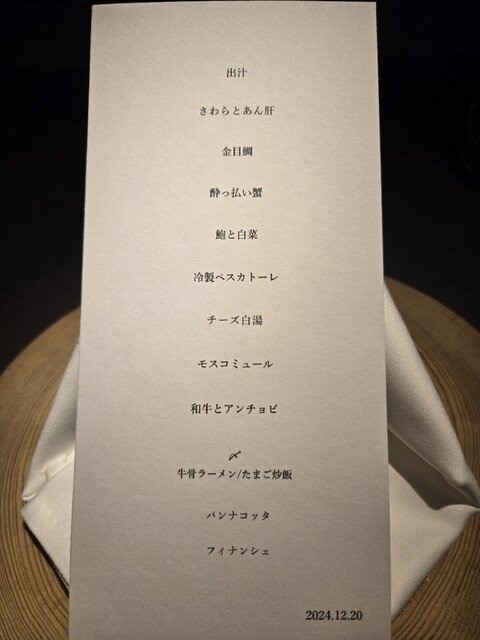 出汁
さわらとあん肝
金目鯛
酔っ払い蟹
鮑と白菜
冷製ペスカトーレ
チーズ白湯
モスコミュール
和牛とアンチョビ
〆
牛骨ラーメン/たまご炒飯
パンナコッタ
フィナンシェ
2024.12.20